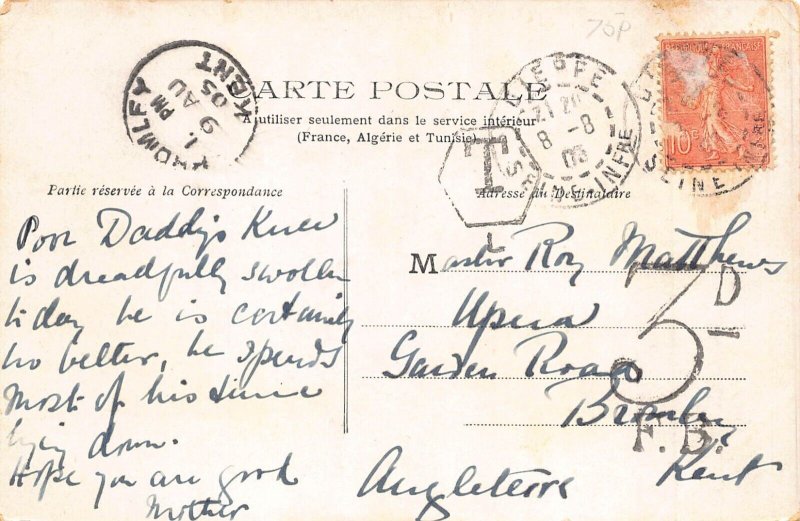 75P
BROMLEY
KENT
1. PM
9 AU
05
CARTE POSTALE
A utiliser seulement dans le service intérieur
(France, Algérie et Tunisie)
DIEPPE
8 -8
SEINE-INFRE
T
L
REPUBLIQUE FRANÇAISE
10c
Partie réservée à la Correspondance
Adresse du Destinataire
Poor Daddys Knee
is dreadfully swollen
to day he is certainly
no better, he spends
most of his time
lying down.
Hope you are good
Mother
Master Roy Matthews
Garden Road
Bromley
Kent
Angleterre
3D
F.B.